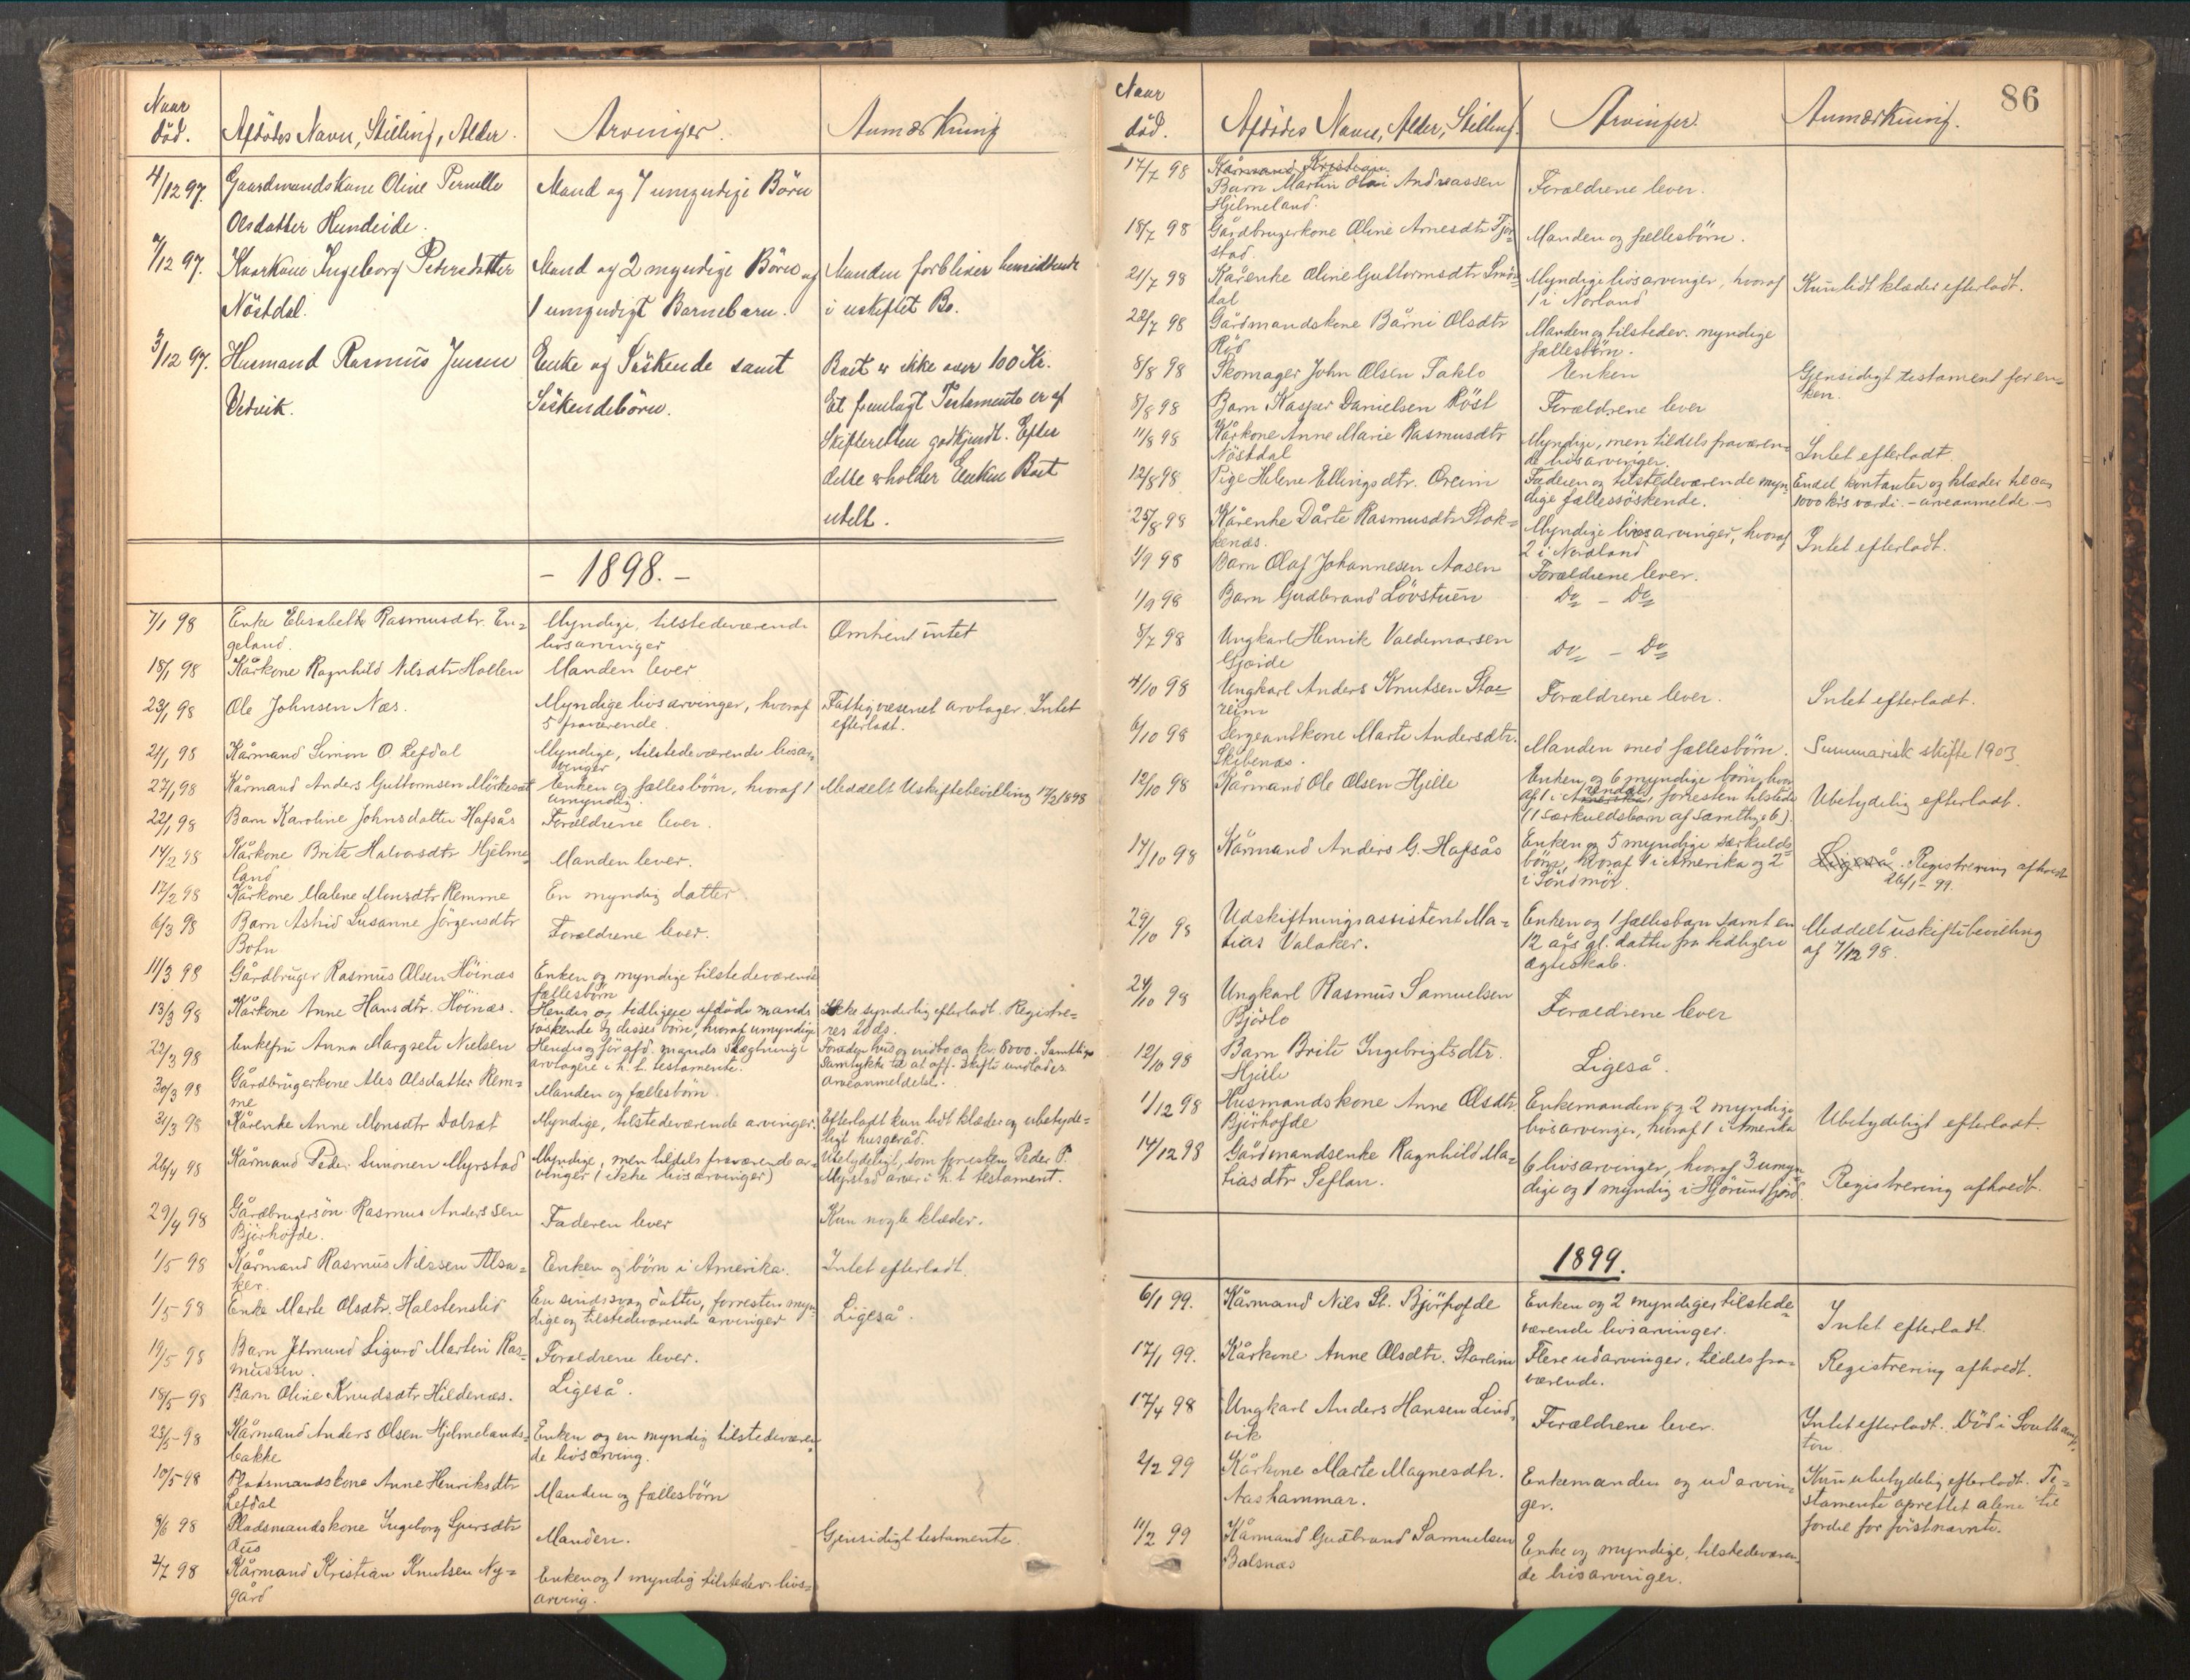 Naar
död.
Afdödes Navn, Stilling, Alder.
Arvinger.
Anmærkning
4/12 97.
Gaardmandskone Oline Pernille
Olsdatter Hundeide.
Mand og 7 umyndige Börn
7/12 97.
Kaarkone Ingeborg Pedersdatter
Nöstdal.
Mand og 2 myndige Börn og
1 umyndigt Barnebarn.
Manden forbliver hensiddende
i uskiftet Bo.
3/12 97.
Husmand Rasmus Jensen
Vedvik.
Enke og Söskende samt
Söskendebörn.
Boet er ikke over 100 Kr.
Et fremlagt Testamente er af
Skifteretten godkjendt. Efter
dette erholder Enken Boet
udelt.
- 1898. -
7/1 98
Enke Elisabeth Rasmusdtr. En=
geland.
Myndige, tilstedeværende
livsarvinger
Omtrent intet
18/1 98
Kårkone Ragnhild Nilsdtr Hollen
Manden lever
23/1 98
Ole Johnsen Nes.
Myndige livsarvinger, hvoraf
5 fraværende.
Fattigvæsenet arvtager. Intet
efterladt.
21/1 98
Kårmand Simon O. Lefdal
Myndige, tilstedeværende livsar=
vinger
27/1 98
Kårmand Anders Guttormsen Mörkesæt
Enken og fællesbörn, hvoraf 1
umyndig.
Meddelt Uskiftebevilling 17/2 1898
22/1 98
Barn Karoline Johnsdatter Hafsås
Forældrene lever.
14/2 98
Kårkone Brite Halvorsdtr Hjelme=
land
Manden lever.
12/2 98
Kårkone Malene Monsdtr Remme
En myndig datter
6/3 98
Barn Astrid Susanne Jörgensdtr
Botn
Forældrene lever.
11/3 98
Gårdbruger Rasmus Olsen Höinæs
Enken og myndige tilstedeværende
fællesbörn
13/3 98
Kårkone Anne Hansdtr. Höinæs.
Hendes og tidligere afdöde mands
söskende og disses börn, hvoraf umyndige
Ikke synderlig efterladt. Registre=
res 20 ds.
22/3 98
Enkefru Anna Margrete Nielsen
Hendes og för afd. mands slægtninge
arvtagere i h. t. testamente.
hus og indbo ca. kr. 8000. Samtlige
Samtykke til at off. skifte undlades
arveanmeldelse.
30/3 98
Gårdbrugerkone Ales Olsdatter Rem=
me
Manden og fællesbörn
31/3 98
Kårenke Anne Monsdtr Dalsæt
Myndige, tilstedeværende arvinger.
Efterladt kun lidt klæder og ubetyde=
ligt husgeråd.
26/4 98
Kårmand Peder Simonsen Myrstad
Myndige, men tildels fraværende ar=
vinger (ikke livsarvinger)
Ubetydeligt, som forresten Peder P.
Myrstad arver i h. t. testament.
29/4 98
Gårdbrugersön Rasmus Anderssen
Björhofde.
Faderen lever
Kun nogle klæder.
1/5 98
Kårmand Rasmus Nilssen Alsa=
ker.
Enken og börn i Amerika.
Intet efterladt.
1/5 98
Enke Marte Olsdtr. Halstenslid
En sindssvag datter, forresten myn=
dige og tilstedeværende arvinger
Ligeså.
19/5 98
Barn Jetmund Sigurd Martin Ras=
mussen.
Forældrene lever.
18/5-98
Barn Oline Knudsdtr Hildenæs.
Ligeså.
23/5-98
Kårmand Anders Olsen Hjelmelands=
bakke
Enken og en myndig tilstedeværen=
de livsarving.
10/5-98
Pladsmandskone Anne Henriksdtr
Lefdal
Manden og fællesbörn
9/6 98
Pladsmandskone Ingeborg Sjursdtr
Aus
Manden.
Gjensidigt testamente.
2/7 98
Kårmand Kristian Knutsen Ny=
gård
Enken og 1 myndig tilstedev. livs=
arving.
86
Naar
död.
Afdödes Navn, Alder, Stilling.
Arvinger.
Anmærkning.
17/7 98
Kårmand Kristian
Barn Martin Olai Andreassen
Hjelmeland.
Forældrene lever.
18/7 98
Gårdbrugerkone Oline Arnesdtr Tjör=
stad
Manden og fællesbörn.
21/7 98
Kårenke Oline Guttormsdtr Smör=
dal
Myndige livsarvinger, hvoraf
1 i Norland
Kun lidt klæder efterladt.
22/7 98
Gårdmandskone Bårni Olsdtr
Röd
Manden og tilstedev. myndige
fællesbörn.
8/8 98
Skomager John Olsen Taklo
Enken
Gjensidigt testament for en=
ken.
8/8 98
Barn Kasper Danielsen Röst
Forældrene lever
11/8 98
Kårkone Anne Marie Rasmusdtr
Nöstdal
Myndige, men tildels fraværen=
de livsarvinger.
Intet efterladt
12/8 98
Pige Helene Ellingsdtr. Oreim
Faderen og tilstedeværende myn=
dige fællessöskende.
Endel kontanter og klæder til ca.
1000 kr's værdi. - arveanmelde. -
25/8 98
Kårenke Dårte Rasmusdtr Stok=
kenæs.
Myndige livsarvinger, hvoraf
2 i Nordland
Intet efterladt.
1/9 98
Barn Olaf Johannesen Aasen
Forældrene lever.
1/9 98
Barn Gudbrand Lövstuen
Do - Do
8/7 98
Ungkarl Henrik Valdemarsen
Gjøide
Do - Do
4/10 98
Ungkarl Anders Knutsen Sta=
reim
Forældrene lever.
Intet efterladt.
6/10 98
Sergeantkone Marte Andersdtr.
Skibenæs.
Manden med fællesbörn.
Summarisk skifte 1903
12/10 98
Kårmand Ole Olsen Hjelle
Enken og 6 myndige börn, hvor=
af 1 i Arendal, forresten tilstede
(1 særkuldsbarn af samtlige 6).
Ubetydelig efterladt.
17/10 98
Kårmand Anders G. Hafsås
Enken og 5 myndige særkulds=
börn, hvoraf 1 i Amerika og 2
i Söndmör.
Ligeså. Registrering afholdt
26/1-99.
29/10 98
Udskiftningsassistent Ma=
tias Valaker.
Enken og 1 fællesbarn samt en
12 års gl. datter fra tidligere
ægteskab.
Meddelt uskiftebevilling
af 7/12 98.
24/10 98
Ungkarl Rasmus Samuelsen
Björlo
Forældrene lever
12/10 98
Barn Brite Ingebrigtsdtr.
Hjelle
Ligeså.
1/12 98
Husmandskone Anne Olsdtr.
Björhofde
Enkemanden og 2 myndige
livsarvinger, hvoraf 1 i Amerika
Ubetydeligt efterladt.
14/12 98
Gårdmandsenke Ragnhild Ma=
tiasdtr Seflan.
6 livsarvinger, hvoraf 3 umyn=
dige og 1 myndig i Hjörundfjord.
Registrering afholdt.
1899.
6/1 99.
Kårmand Nils St. Björhofde
Enken og 2 myndige, tilstede=
værende livsarvinger.
Intet efterladt.
17/1 99.
Kårkone Anne Olsdtr. Stareim
Flere udarvinger, tildels fra=
værende.
Registrering afholdt.
17/4 98
Ungkarl Anders Hansen Lind=
vik
Forældrene lever.
Intet efterladt. Död i Southamp=
ton.
2/2 99
Kårkone Marte Magnesdtr.
Aashammar.
Enkemanden og udarvin=
ger.
Kun ubetydelig efterladt. Te=
stamente oprettet alene til
fordel for förstnævnte.
11/2 99
Kårmand Gudbrand Samuelsen
Balsnæs
Enke og myndige, tilstedeværen=
de livsarvinger.